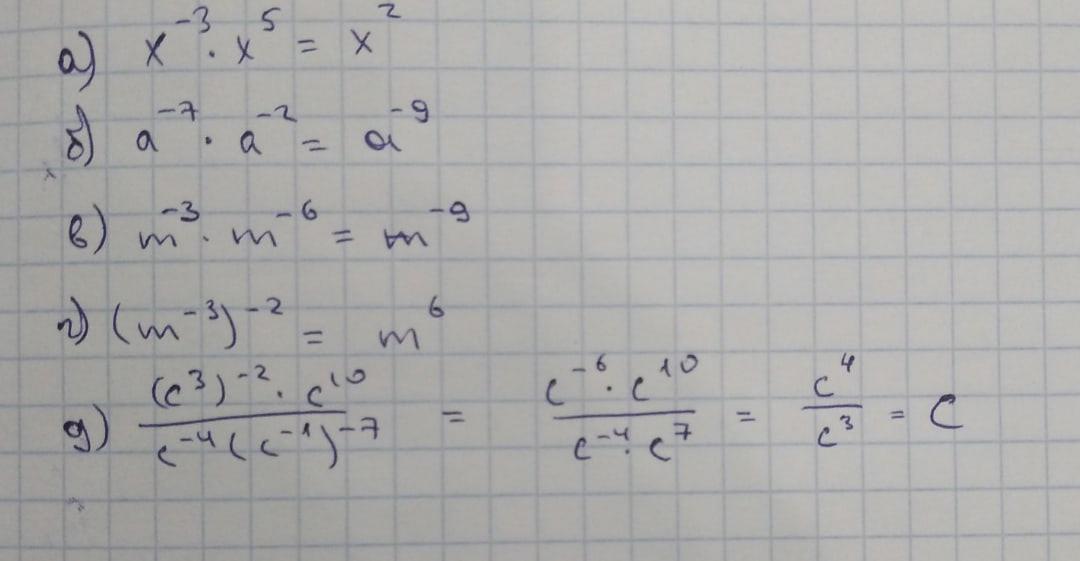 а) x⁻³ · x⁵ = x²
б) a⁻⁷ · a⁻² = a⁻⁹
в) m⁻³ · m⁻⁶ = m⁻⁹
г) (m⁻³)⁻² = m⁶
д) (c³)⁻² · c¹⁰ / c⁻⁴ (c⁻¹)⁻⁷ = c⁻⁶ · c¹⁰ / c⁻⁴ · c⁷ = c⁴ / c³ = c